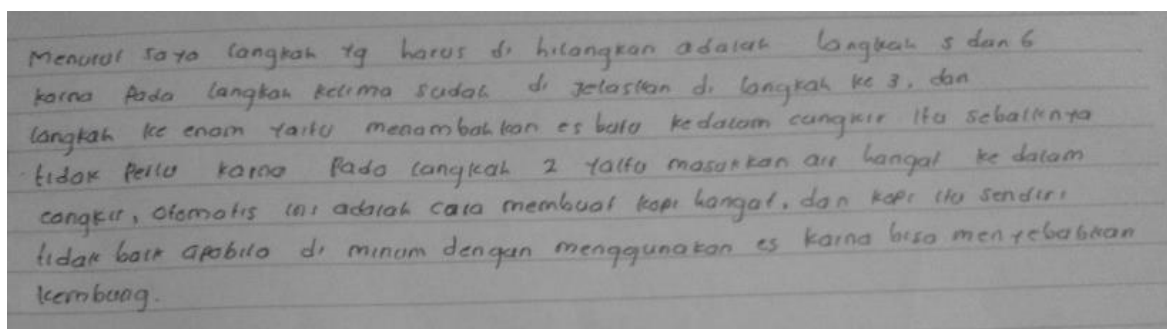 Menurut saya langkah yg harus di hilangkan adalah langkah 5 dan 6
karna pada langkah kelima sudah di jelaskan di langkah ke 3. dan
langkah ke enam yaitu menambahkan es batu kedalam cangkir itu sebaiknya
tidak perlu karna pada langkah 2 yaitu masukkan air hangat ke dalam
cangkir, otomatis ini adalah cara membuat kopi hangat, dan kopi itu sendiri
tidak baik apabila di minum dengan menggunakan es karna bisa menyebabkan
kembung.